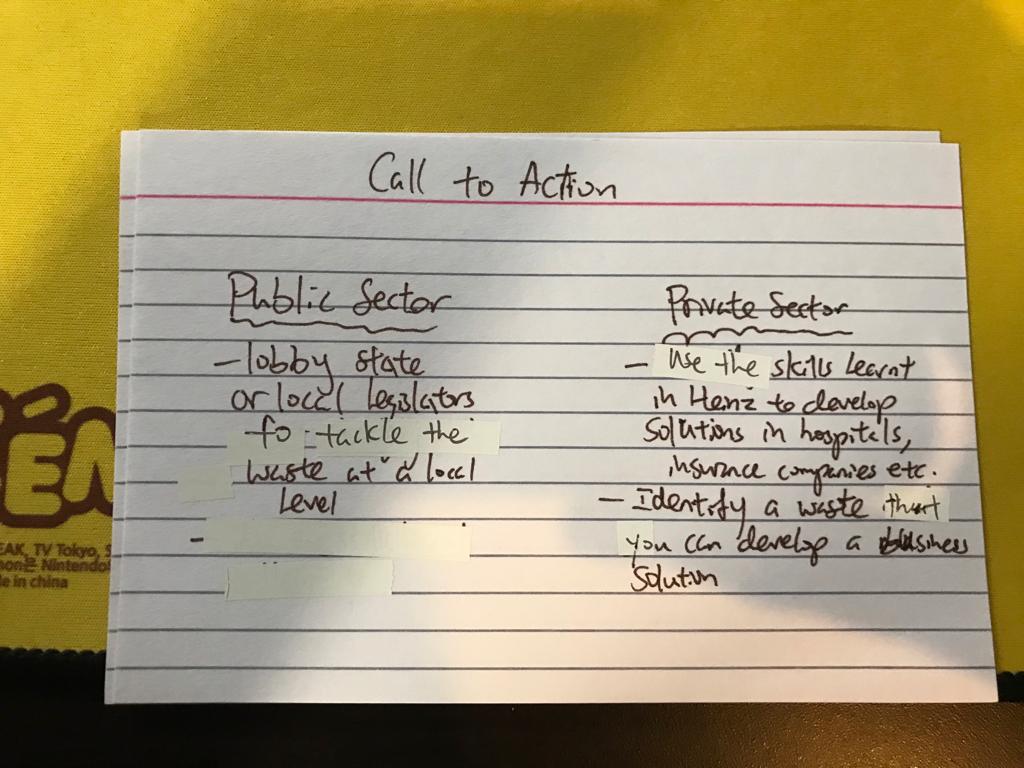 Call to Action
Public Sector
- lobby state
or local legislators
to tackle the
waste at a local
Level
-
Private Sector
- Use the skills learnt
in Heinz to develop
Solutions in hospitals,
insurance companies etc.
- Identify a waste that
you can develop a business
Solution
EAK, TV Tokyo, S
mon은 Nintendo
de in china